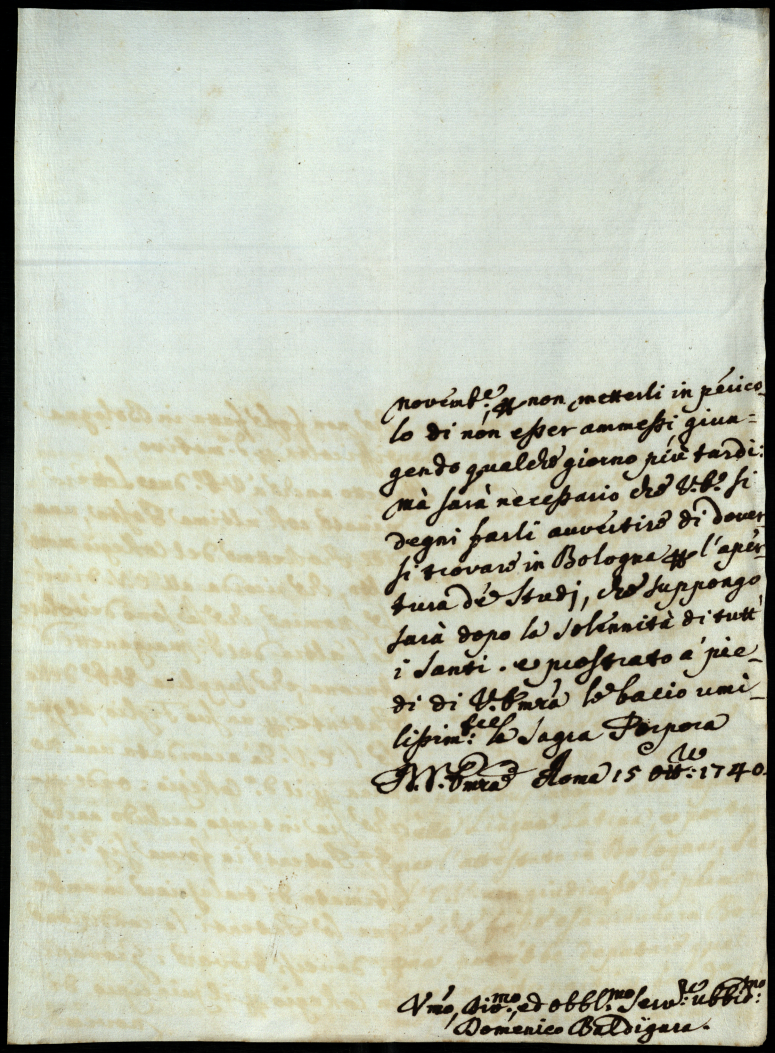 novemb.e p non metterli in perico-
lo di non esser ammessi giun=
gendo qualche giorno più tardi:
mà sarà necessario che V.E. si
degni farli avvertire di dover
si trovare in Bologna p l'aper
tura de Studj, che suppongo
sarà dopo la Solennità di tutt'
i Santi. e prostrato a' pie-
di di V. Emza le bacio umi-
lissim:te la Sagra Porpora
Roma 15 ott:e 1740
Vmo, Dio.mo, ed obbl.mo Serv.re ubbid.mo:
Domenico Baldigara.